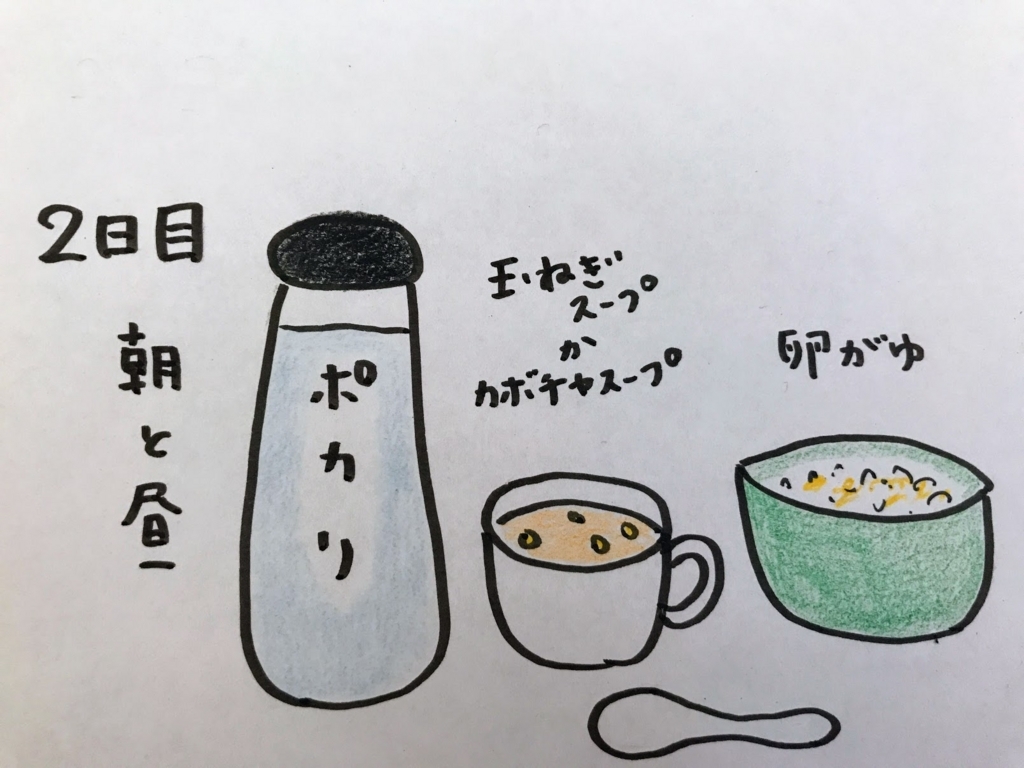 2日目
朝と昼
ポカリ
玉ねぎ
スープ
か
カボチャスープ
卵がゆ